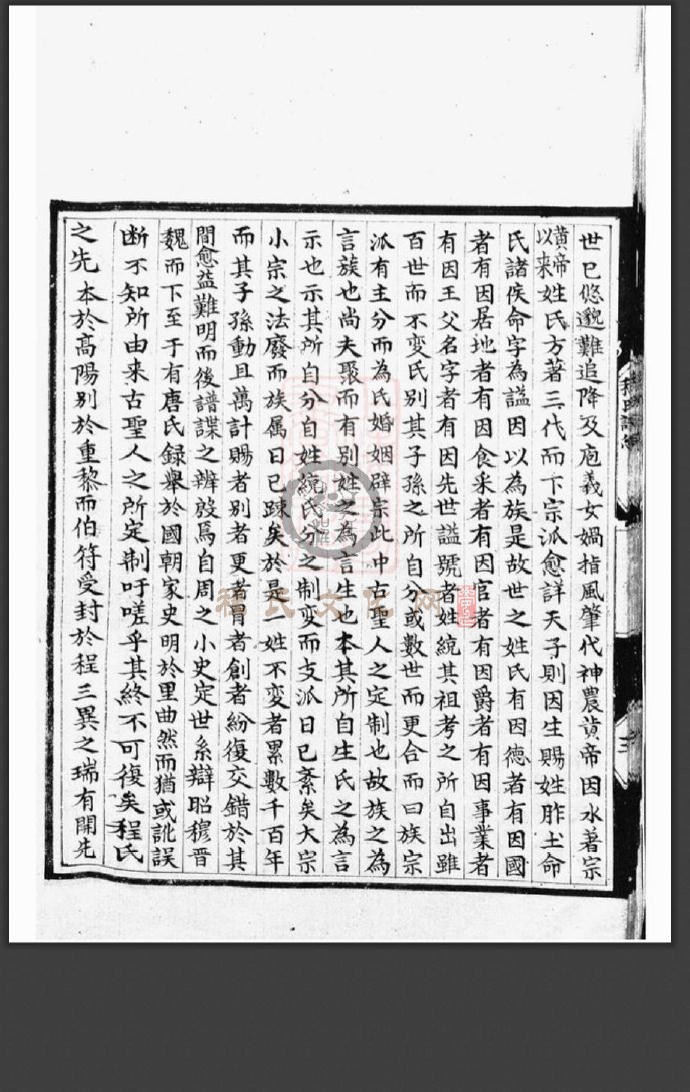 世已悠邈難追降及庖義女媧指風肇代神農黄帝因水著宗
黄帝以来姓氏方著三代而下宗派愈詳天子則因生賜姓胙土命
氏諸侯命字為謚因以為族是故世之姓氏有因德者有因國
者有因居地者有因食采者有因官者有因爵者有因事業者
有因王父名字者有因先世謚號者姓統其祖考之所自出雖
百世而不变氏别其子孫之所自分或数世而更合而曰族宗
派有主分而為氏婚姻辟宗此中古聖人之定制也故族之為
言蔟也尚夫聚而有别姓之為言生也本其所自生氏之為言
示也示其所自分自姓統氏分之制变而支派日已紊矣大宗
小宗之法廢而族属日已踈矣於是一姓不变者累數千百年
而其子孫動且萬計賜者别者更者冐者創者紛復交錯於其
間愈益難明而後譜諜之辨殷焉自周之小史定世系辯昭穆晋
魏而下至于有唐氏録舉於國朝家史明於里曲然而猶或訛誤
断不知所由来古聖人之所定制吁嗟乎其終不可復矣程氏
之先本於髙陽别於重黎而伯符受封於程三異之瑞有開先
程氏文化网